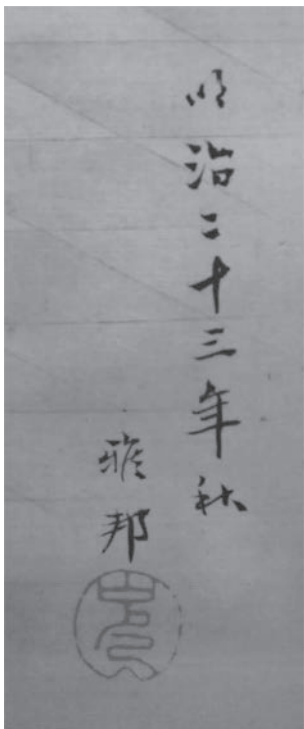 明治二十三年秋
雅邦